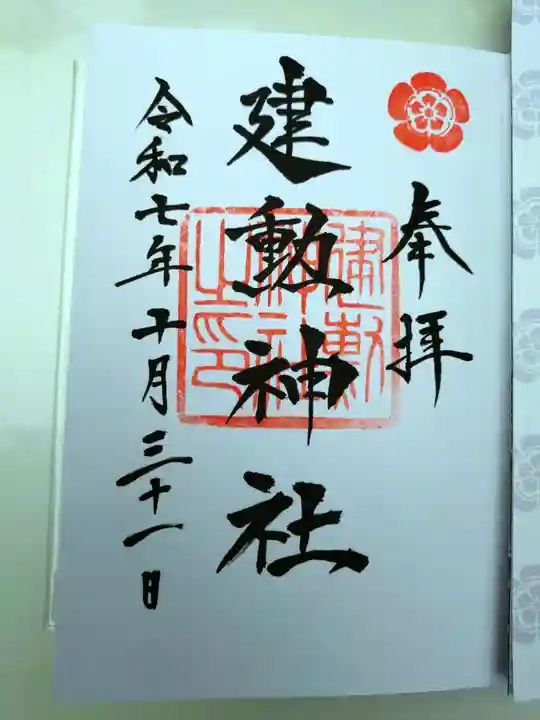 奉拝
建勲神社
令和七年十月三十一日
建勲
神社
之印